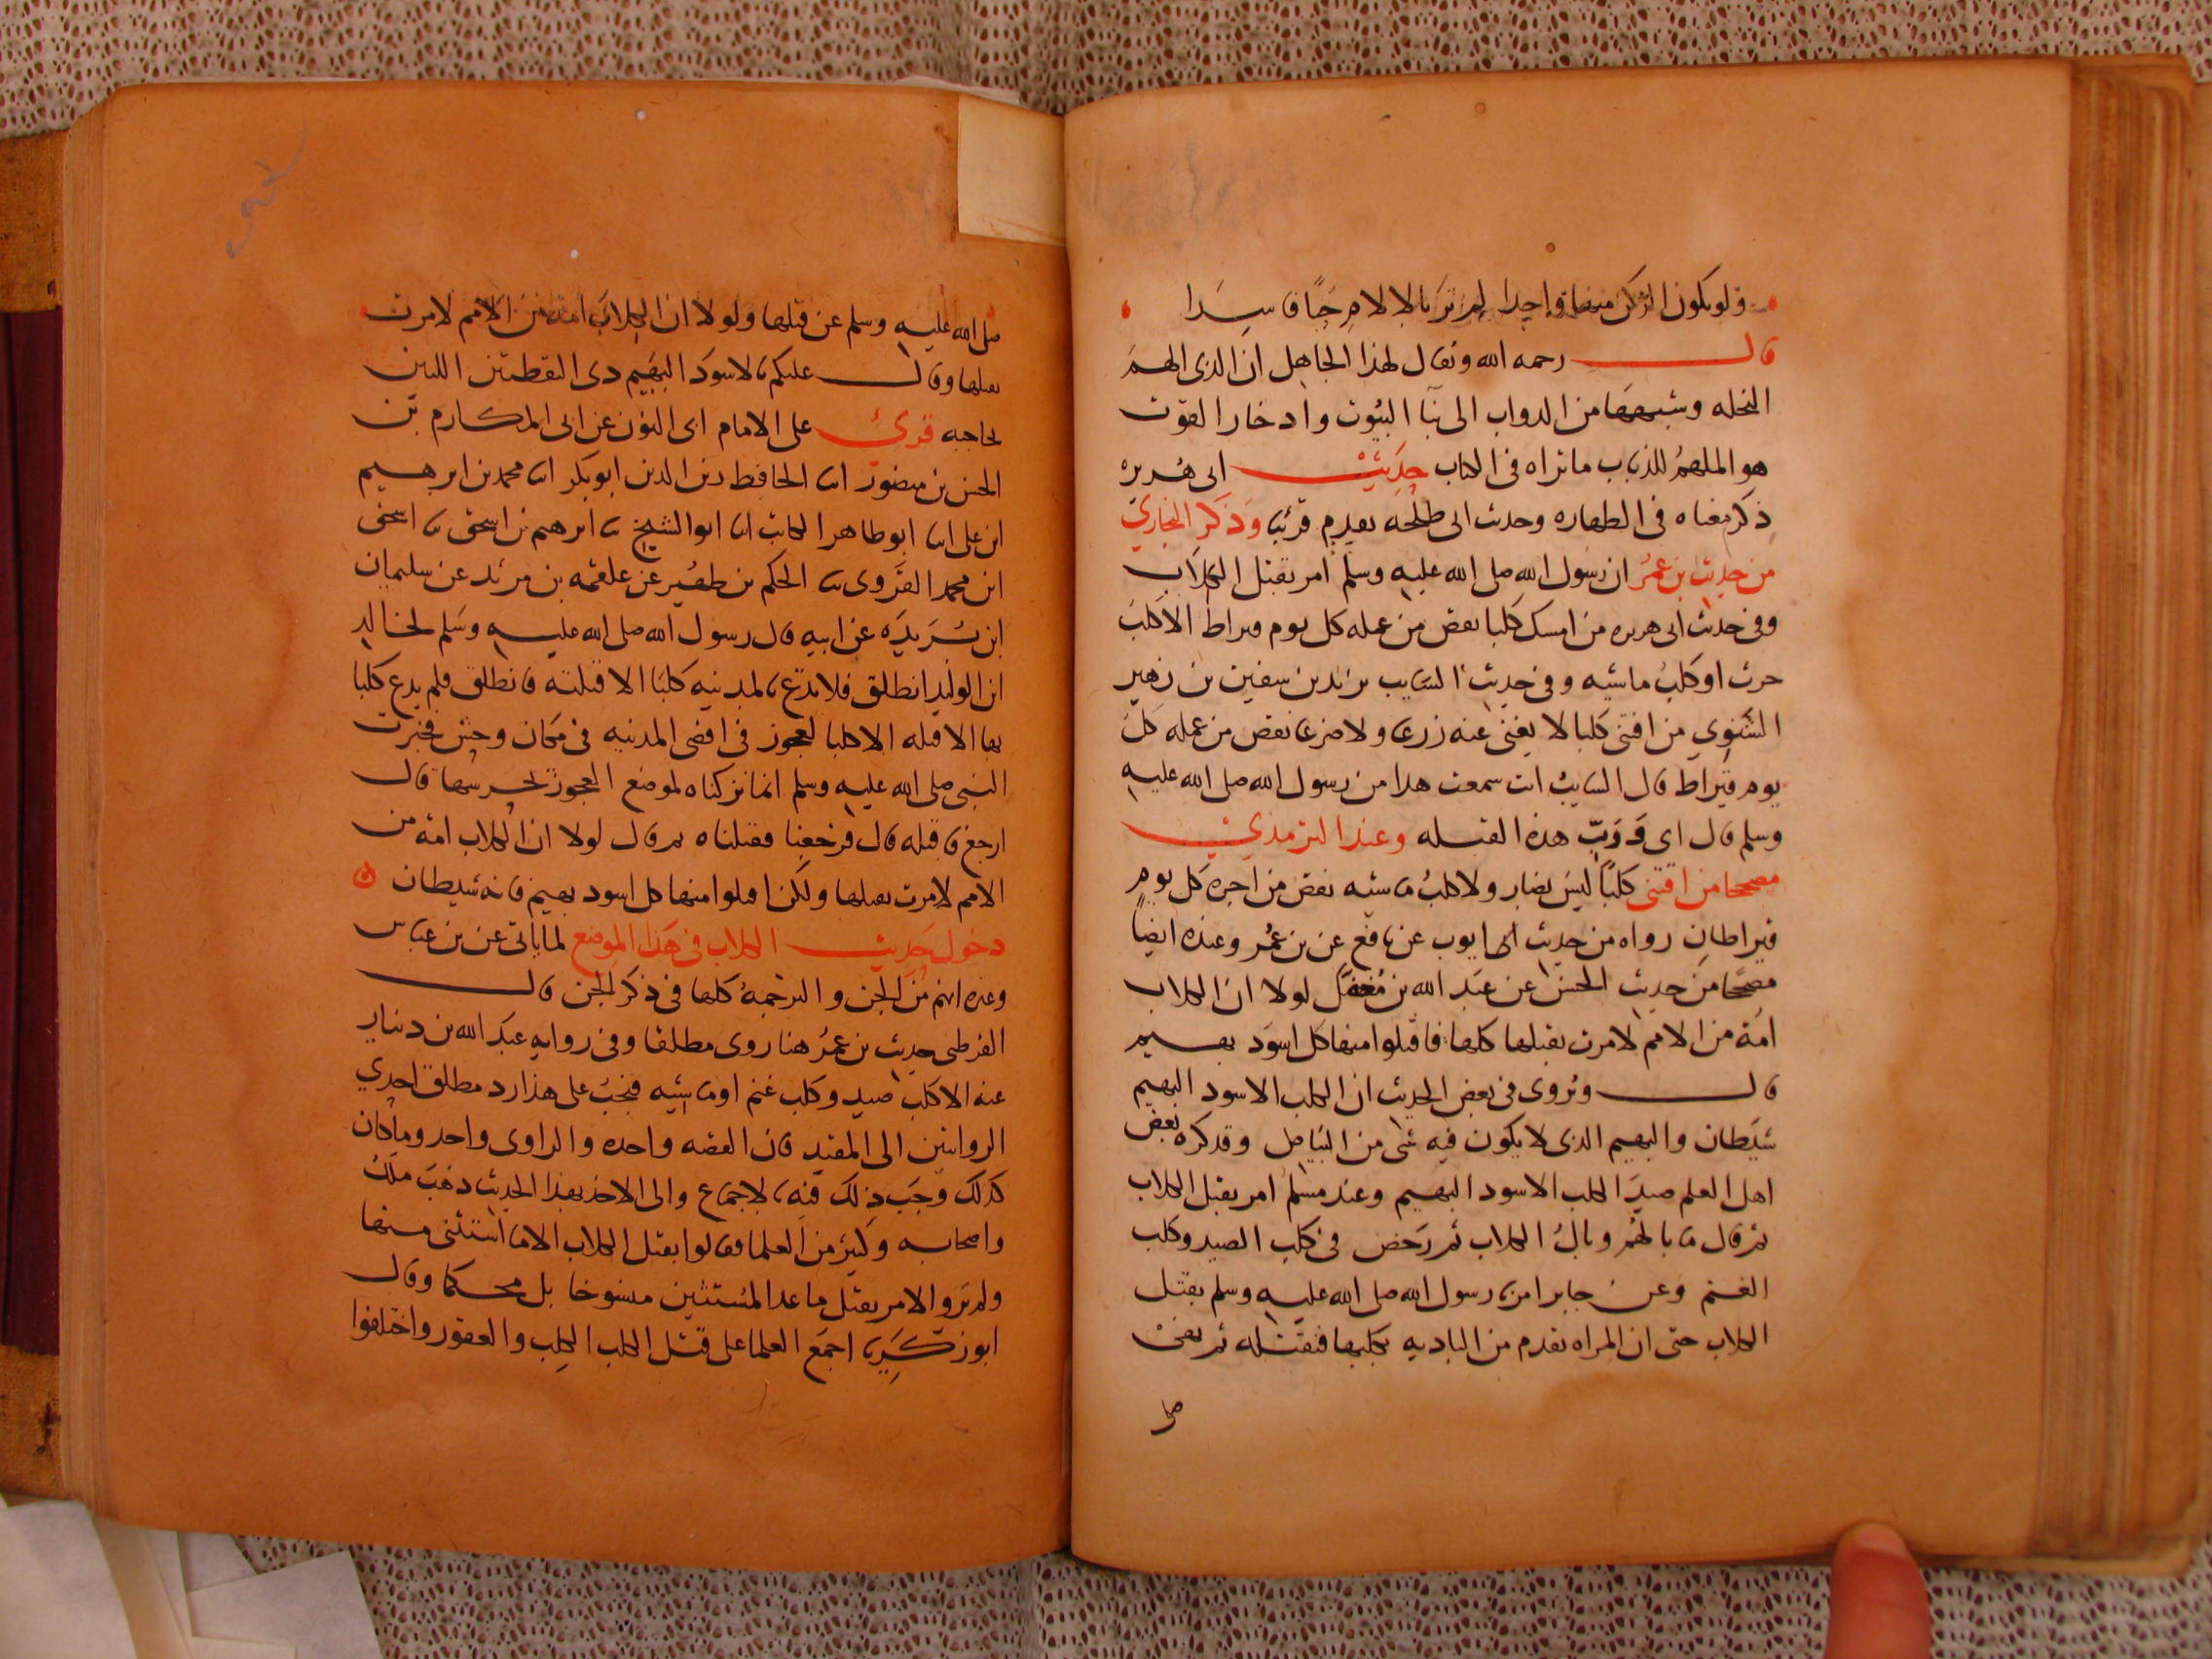 ولو يكون الركن منها واحدا لم تر بالالام حيا فاسدا
قال رحمه الله ويقال لهذا الجاهل ان الذى الهم
النحله وشبهها من الدواب الى بنا البيوت وادخار القوت
هو الملهم للذباب ماتراه فى الكتاب حديث ابى هريره
ذكر معناه فى الطهاره وحديث ابى طلحه تقدم قريبا وذكر البخاري
من حديث بن عمر ان رسول الله صلى الله عليه وسلم امر بقتل الكلاب
وفى حديث ابى هريره من امسك كلبا نقص من عمله كل يوم قيراط الا كلب
حرث او كلب ماشيه وفى حديث السايب بن يزيد بن سفين بن زهير
الشنوي من اقتنى كلبا لا يغنى عنه زرعا ولا ضرعا نقص من عمله كل
يوم قيراط قال السايب انت سمعت هذا من رسول الله صلى الله عليه
وسلم قال اى ورب هذه القبله وعند الترمذي
مصححا من اقتنى كلبا ليس بضار ولا كلب ماشيه نقص من اجره كل يوم
قيراطان رواه من حديث ايوب عن نافع عن بن عمر وعنده ايضا
مصححا من حديث الحسن عن عبد الله بن مغفل لولا ان الكلاب
امة من الامم لامرت بقتلها كلها فاقتلوا منها كل اسود بهيم
قال ويروى فى بعض الحديث ان الكلب الاسود البهيم
شيطان والبهيم الذى لا يكون فيه شى من البياض وقد كره بعض
اهل العلم صيد الكلب الاسود البهيم وعند مسلم امر بقتل الكلاب
ثم قال ما بالهم وبال الكلاب ثم رخص فى كلب الصيد وكلب
الغنم وعن جابر امرنا رسول الله صلى الله عليه وسلم بقتل
الكلاب حتى ان المراه تقدم من الباديه بكلبها فنقتله ثم نهى
صلى
صلى الله عليه وسلم عن قتلها ولولا ان الكلاب امة من الامم لامرت
بقتلها وقال عليكم بالاسود البهيم ذى النقطتين اللتين
بحاجبه قرئ على الامام ابى النون عن ابى المكارم بن
الحسن بن منصور انا الحافظ زين الدين ابو بكر انا محمد بن ابرهيم
ابن على انا ابو طاهر الكاتب انا ابو الشيخ نا ابرهيم بن اسحق نا اسحق
ابن محمد الفروى نا الحكم بن ظهير عن علقمه بن مرثد عن سليمان
ابن بريده عن ابيه قال رسول الله صلى الله عليه وسلم لخالد
ابن الوليد انطلق فلا تدع بالمدينه كلبا الا قتلته فانطلق فلم يدع كلبا
بها الا قتله الا كلبا لعجوز فى اقصى المدينه فى مكان وحش فخبرت
النبى صلى الله عليه وسلم انما تركناه لموضع العجوز تحرسها قال
ارجع فاقتله قال فرجعنا فقتلناه ثم قال لولا ان الكلاب امة من
الامم لامرت بقتلها ولكن اقتلوا منها كل اسود بهيم فانه شيطان ه
دخول حديث الكلاب فى هذا الموضع لما ياتى عن بن عباس
وغيره انهم من الجن والترجمة كلها فى ذكر الجن قال
القرطبى حديث بن عمر هنا روى مطلقا وفى روايه عبد الله بن دينار
عنه الا كلب صيد وكلب غنم او ماشيه فيجب على هذا رد مطلق احدي
الروايتين الى المقيد فان القصه واحده والراوى واحد وما كان
كذلك وجب ذلك فيه بالاجماع والى الاخذ بهذا الحديث ذهب ملك
واصحابه وكثير من العلما فقالوا بقتل الكلاب الا ما استثنى منها
ولم يروا الامر بقتل ما عدا المستثنين منسوخا بل محكما وقال
ابو زكريا اجمع العلما على قتل الكلب الكلب والعقور واختلفوا